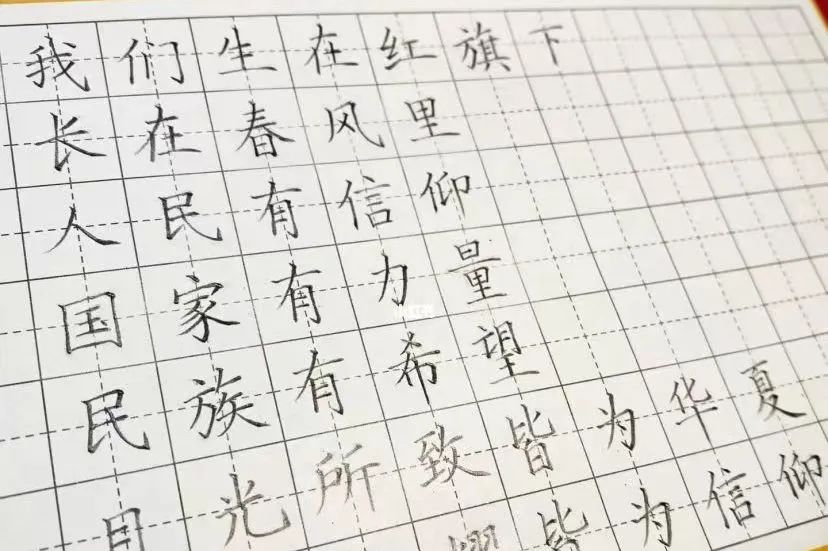 我们生在红旗下
长在春风里
人民有信仰
国家有力量
民族有希望
目光所致皆为华夏
耀皆为信仰